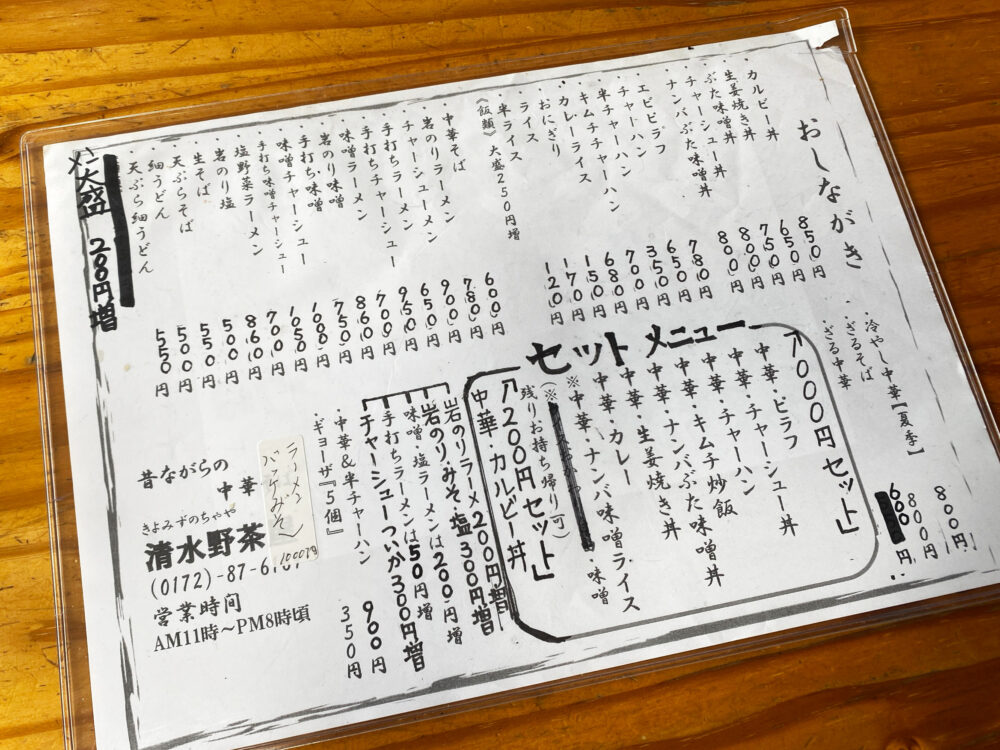 おしながき
・カルビー丼 850円
・生姜焼き丼 650円
・ぶた味噌丼 750円
・チャーシュー丼 800円
・ナンバぶた味噌丼 800円
・エビピラフ 780円
・チャーハン 650円
・半チャーハン 350円
・キムチチャーハン 700円
・カレーライス 680円
・おにぎり 150円
・ライス 170円
・半ライス 120円
《飯類》大盛250円増
・中華そば 600円
・岩のりラーメン 780円
・チャーシューメン 900円
・手打ちラーメン 650円
・手打ちチャーシュー 950円
・味噌ラーメン 700円
・岩のり味噌 860円
・手打ち・味噌 750円
・味噌チャーシュー 1000円
・手打ち味噌チャーシュー 1050円
・塩野菜ラーメン 700円
・岩のり塩 860円
・生そば 500円
・天ぷらそば 550円
・細うどん 500円
・天ぷら細うどん 550円
メン大盛 200円増
・冷やし中華【夏季】 800円
・ざるそば 800円
・ざる中華 円
セットメニュー
「1000円セット」
中華・ピラフ
中華・チャーシュー丼
中華・チャーハン
中華・キムチ炒飯
中華・ナンバぶた味噌丼
中華・生姜焼き丼
中華・カレー
※中華・ナンバ味噌ライス
・味噌
残りお持ち帰り(可)
「1200円セット」
中華・カルビー丼
岩のりラーメン200円増
岩のり・みそ・塩300円増
味噌・塩ラーメンは200円増
手打ちラーメンは50円増
チャーシューついか300円増
・中華&半チャーハン 900円
・ギョーザ『5個』 350円
ラーメン
1000円
昔ながらの
中華
きよみずのちゃや
清水野茶
(0172)-87-6
営業時間
AM11時～PM8時頃